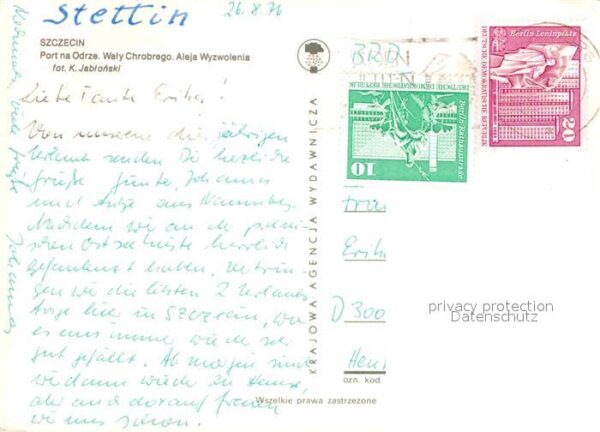 Stettin
26.8.76
SZCZECIN
Port na Odrze. Wały Chrobrego. Aleja Wyzwolenia
fot. K. Jabłoński
Liebe Tante Erika!
Von unserem diesjährigen
Urlaub senden Dir herzliche
Grüße Günter, Johannes
und Antje aus
Nachdem wir an der polni-
schen Ostseeküste herrlich
gefaulenzt haben, verbrin-
gen wir die letzten 2 Urlaubs-
tage hier in Szczecin, wo
es uns immer wieder sehr
gut gefällt. Ab morgen sind
wir dann wieder zu Hause,
aber auch darauf freuen
wir uns schon.
viele Grüße Johannes
KRAJOWA AGENCJA WYDAWNICZA
BRD
Berlin, Leninplatz
DEUTSCHE DEMOKRATISCHE REPUBLIK
20
DEUTSCHE DEMOKRATISCHE REPUBLIK
10
Frau
Erika
D 300
privacy protection
Datenschutz
ozn. kod.
Wszelkie prawa zastrzeżone